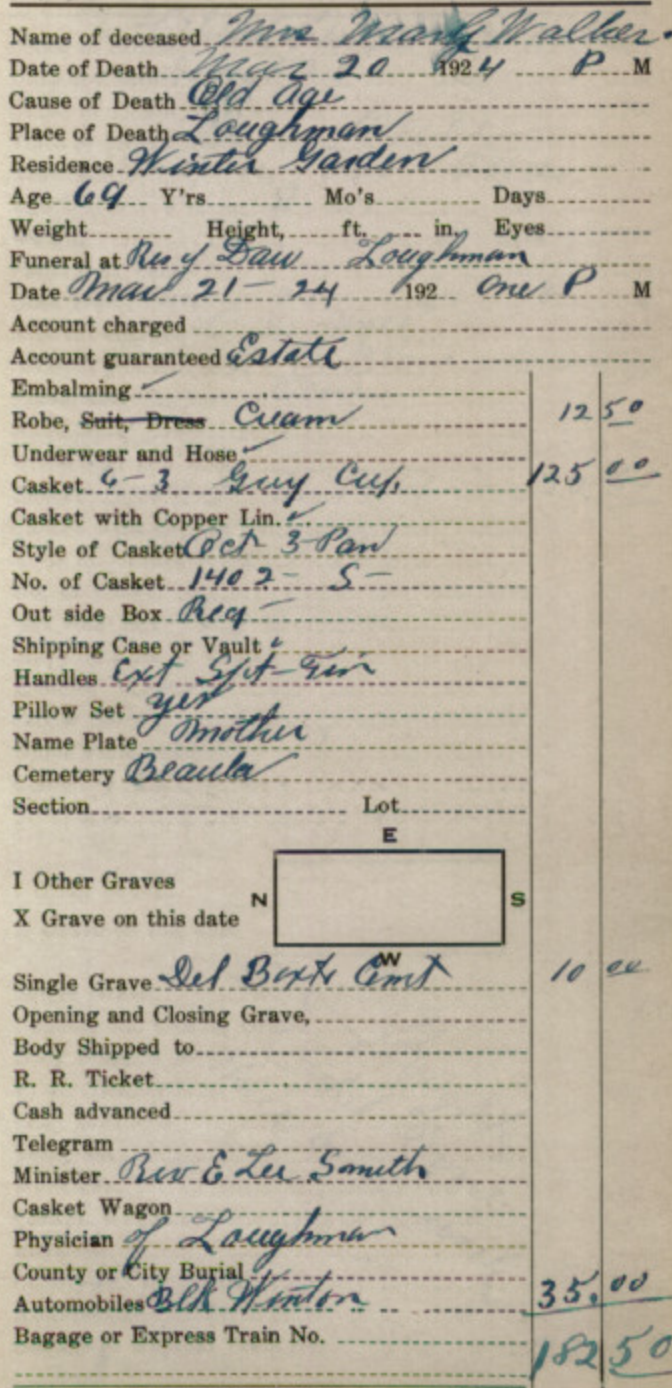 Name of deceased Mrs Mary Walker.
Date of Death Mar 20 1924 P M
Cause of Death Old Age
Place of Death Loughman
Residence Winter Garden
Age 69 Y'rs Mo's Days
Weight Height, ft. in. Eyes
Funeral at Res of Daw Loughman
Date Mar 21 - 24 192 One P M
Account charged
Account guaranteed Estate
Embalming ✓
Robe, Suit, Dress Cream 12 50
Underwear and Hose ✓
Casket 6-3 Grey 125 00
Casket with Copper Lin. ✓
Style of Casket Oct 3 Pan
No. of Casket 1402 - S -
Out side Box Reg -
Shipping Case or Vault ✓
Handles Ext
Pillow Set yes
Name Plate Mother
Cemetery Beaula
Section Lot
E
I Other Graves
N S
X Grave on this date
W
Single Grave Del Box to Cemt 10 00
Opening and Closing Grave,
Body Shipped to
R. R. Ticket
Cash advanced
Telegram
Minister Rev E Lee Smith
Casket Wagon
Physician of Loughman
County or City Burial
Automobiles Blk Winton 35.00
Bagage or Express Train No. 182 50